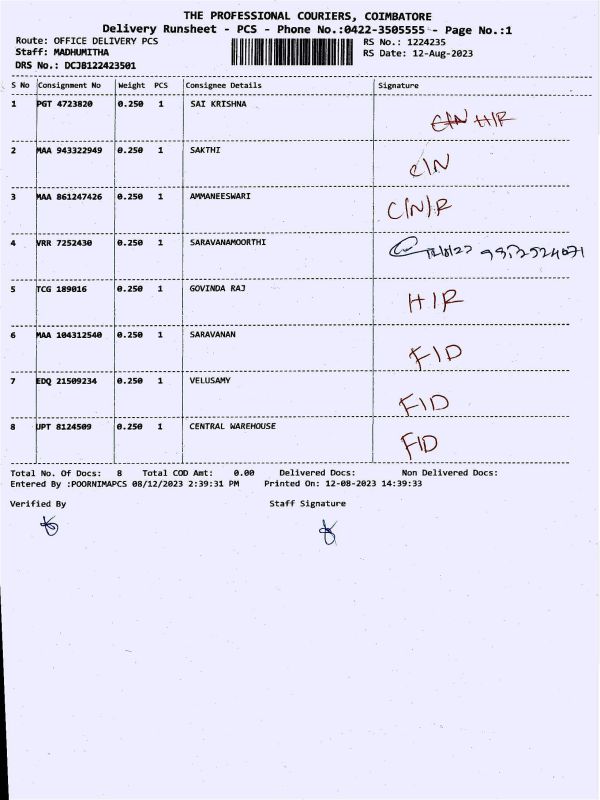 THE PROFESSIONAL COURIERS, COIMBATORE
Delivery Runsheet - PCS - Phone No.:0422-3505555 - Page No.:1
Route: OFFICE DELIVERY PCS RS No.: 1224235
Staff: MADHUMITHA RS Date: 12-Aug-2023
DRS No.: DCJB122423501
S No Consignment No Weight PCS Consignee Details Signature
1 PGT 4723820 0.250 1 SAI KRISHNA
H/R
2 MAA 943322949 0.250 1 SAKTHI
C/N
3 MAA 861247426 0.250 1 AMMANEESWARI
C/N/R
4 VRR 7252430 0.250 1 SARAVANAMOORTHI
5 TCG 189016 0.250 1 GOVINDA RAJ
H/R
6 MAA 104312540 0.250 1 SARAVANAN
F/D
7 EDQ 21509234 0.250 1 VELUSAMY
F/D
8 JPT 8124509 0.250 1 CENTRAL WAREHOUSE
F/D
Total No. Of Docs: 8 Total COD Amt: 0.00 Delivered Docs: Non Delivered Docs:
Entered By :POORNIMAPCS 08/12/2023 2:39:31 PM Printed On: 12-08-2023 14:39:33
Verified By Staff Signature